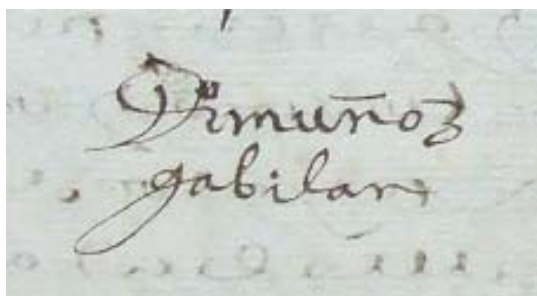 Dr muñoz
gabilan